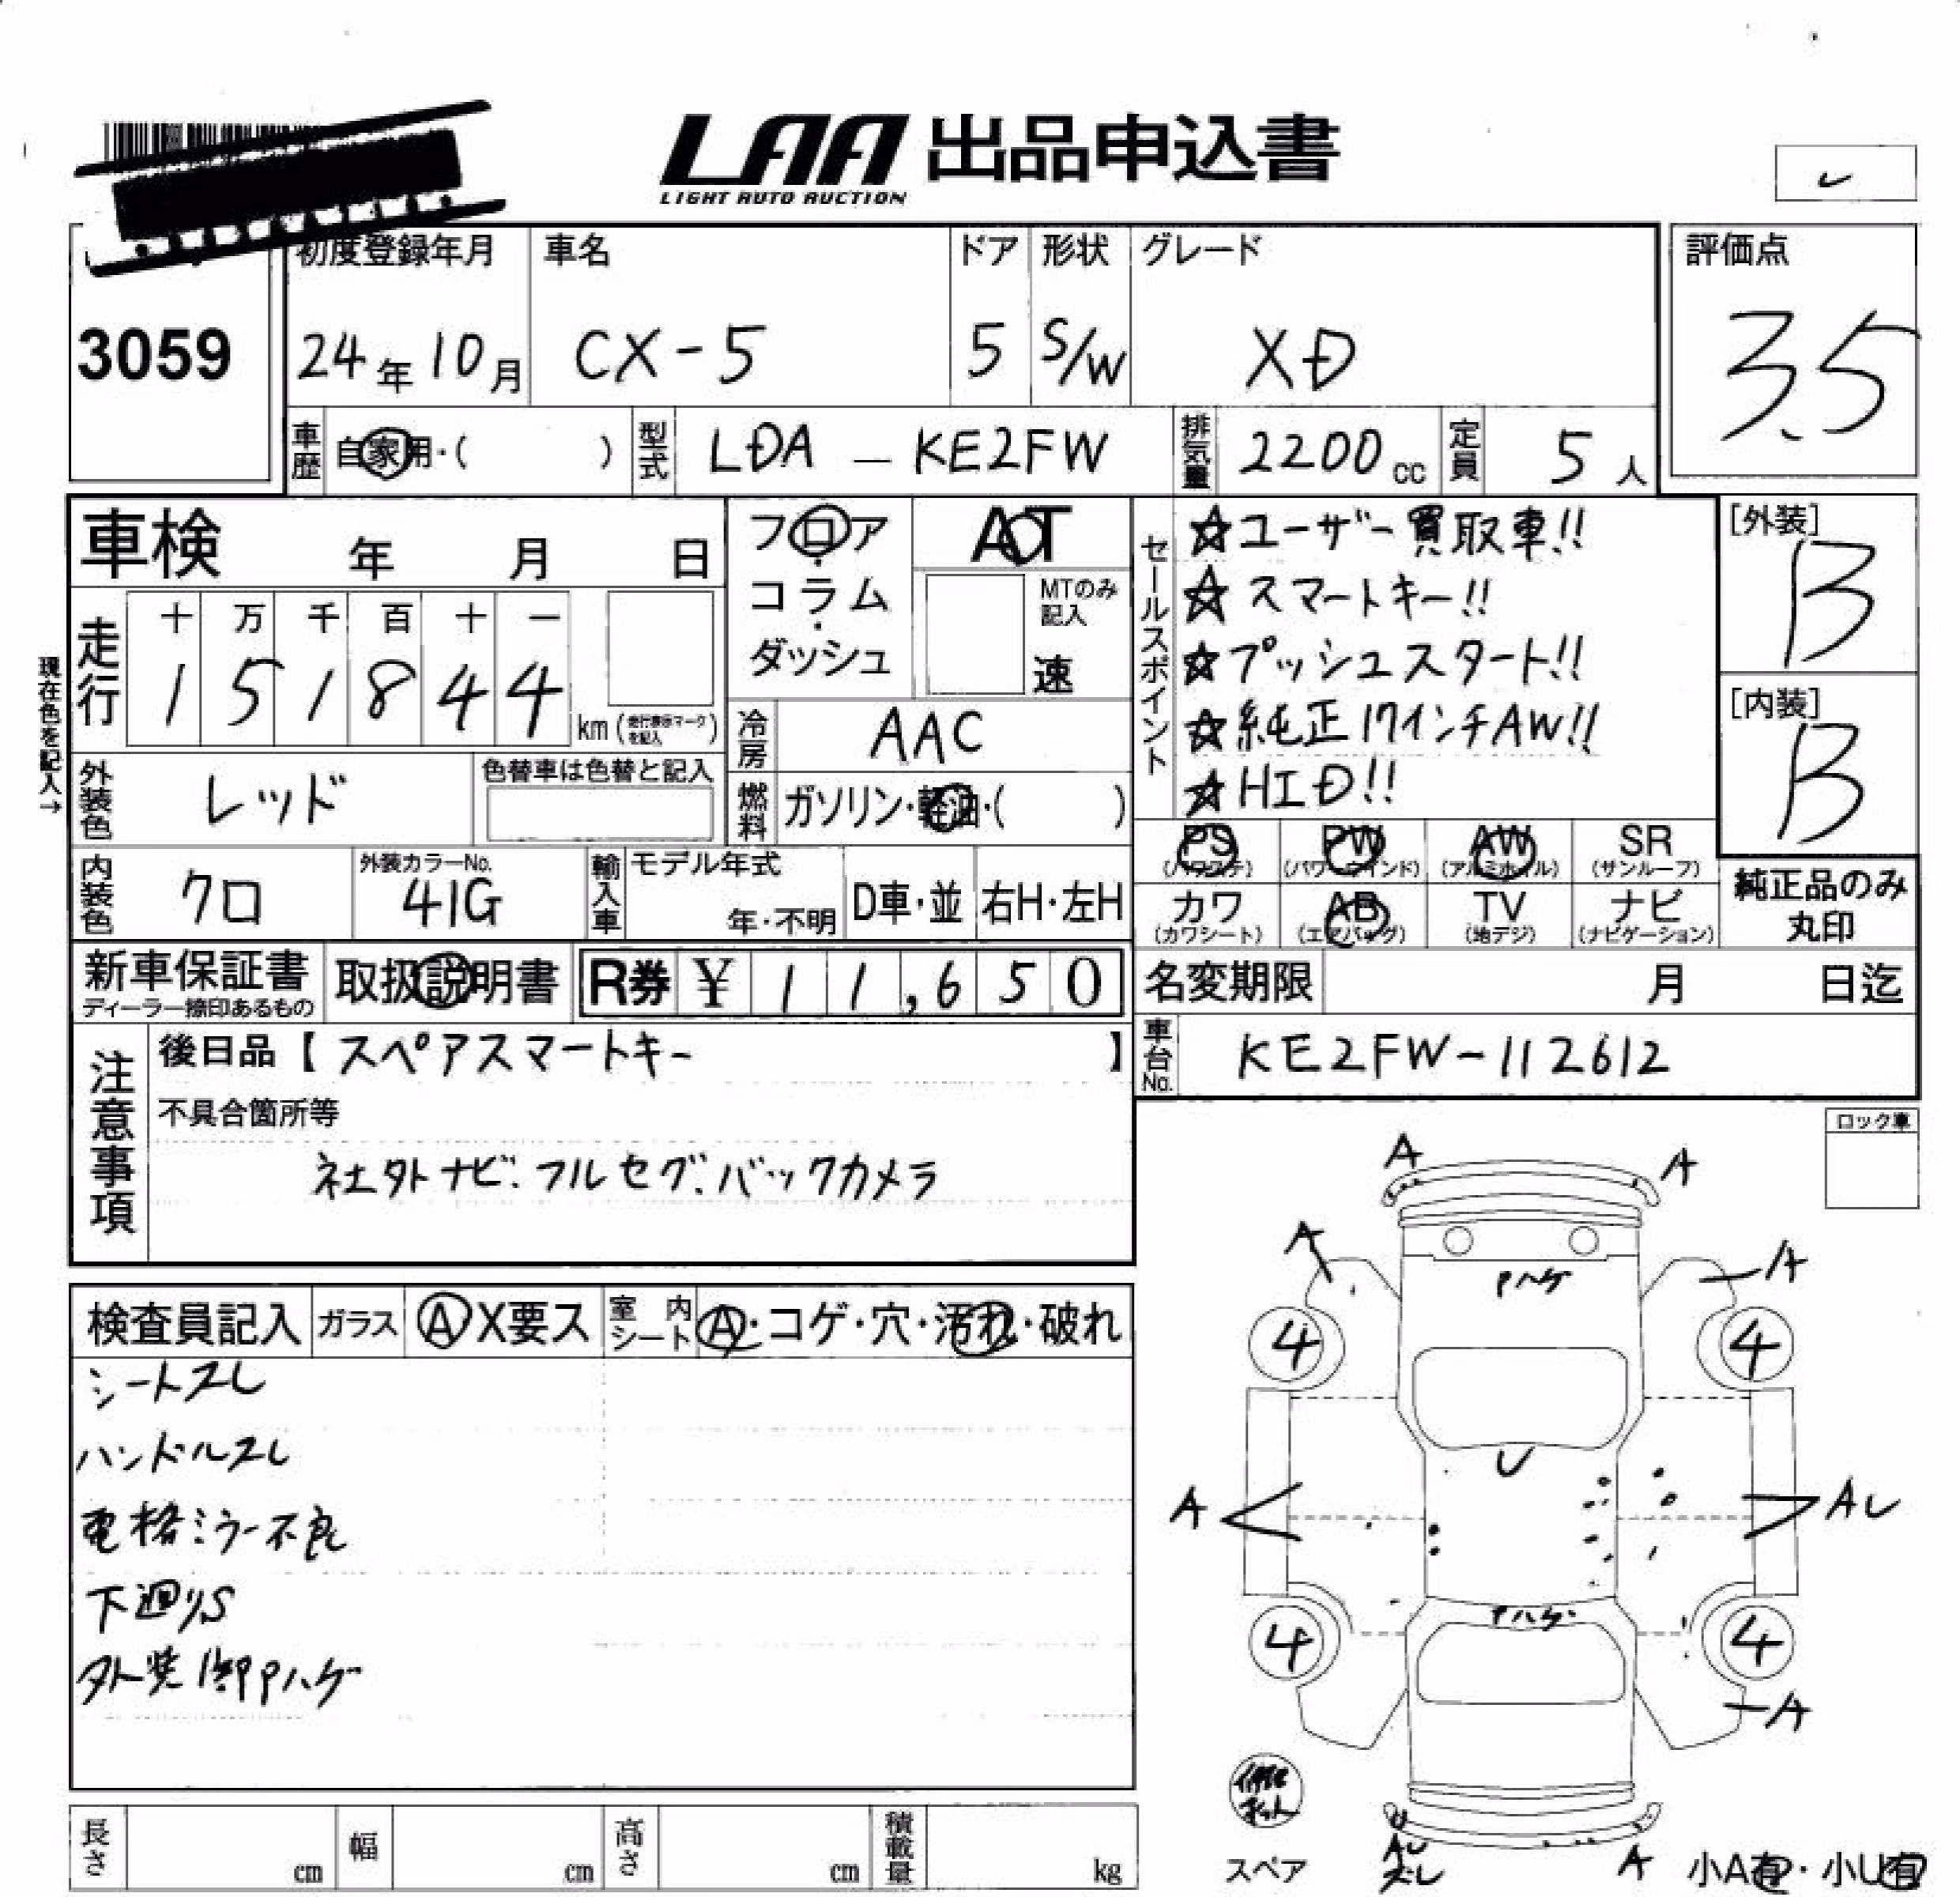 LAA 出品申込書
LIGHT AUTO AUCTION
3059
初度登録年月 車名 ドア 形状 グレード 評価点
24年10月 CX-5 5 S/W XD 3.5
車歴 自家用・( ) 型式 LDA－KE2FW 排気量 2200cc 定員 5人
車検 年 月 日
フロア AT
コラム MTのみ記入
ダッシュ 速
現在色を記入→
走行 十 万 千 百 十 一
1 5 1 8 4 4 km(走行表示マークを記入)
冷房 AAC
外装色 レッド 色替車は色替と記入
燃料 ガソリン・軽油・( )
セールスポイント
☆ユーザー買取車!!
☆スマートキー!!
☆プッシュスタート!!
☆純正17インチAW!!
☆HID!!
[外装]
B
[内装]
B
PS AW SR
PW
(パワステ) (パワーウインド) (アルミホイル) (サンルーフ)
カワ AB TV ナビ
(カワシート) (エアバッグ) (地デジ) (ナビゲーション)
純正品のみ
丸印
内装色 クロ 外装カラーNo. 41G 輸入車 モデル年式 年・不明 D車・並 右H・左H
新車保証書 取扱説明書 R券 ¥ 11,650
ディーラー捺印あるもの
名変期限 月 日迄
車台No. KE2FW-112612
注意事項
後日品【スペアスマートキー 】
不具合箇所等
社外ナビ.フルセグ.バックカメラ
ロック車
検査員記入 ガラス A X要ス 室内シート A・コゲ・穴・汚れ・破れ
シートスレ
ハンドルスレ
電格ミラー不良
下廻りS
外装Pハゲ
A A
A A
Pハゲ
4 4
U
A AU
Pハゲ
4 4
A
スペア
AU
スレ
A
小A有・小U有
長さ cm 幅 cm 高さ cm 積載量 kg